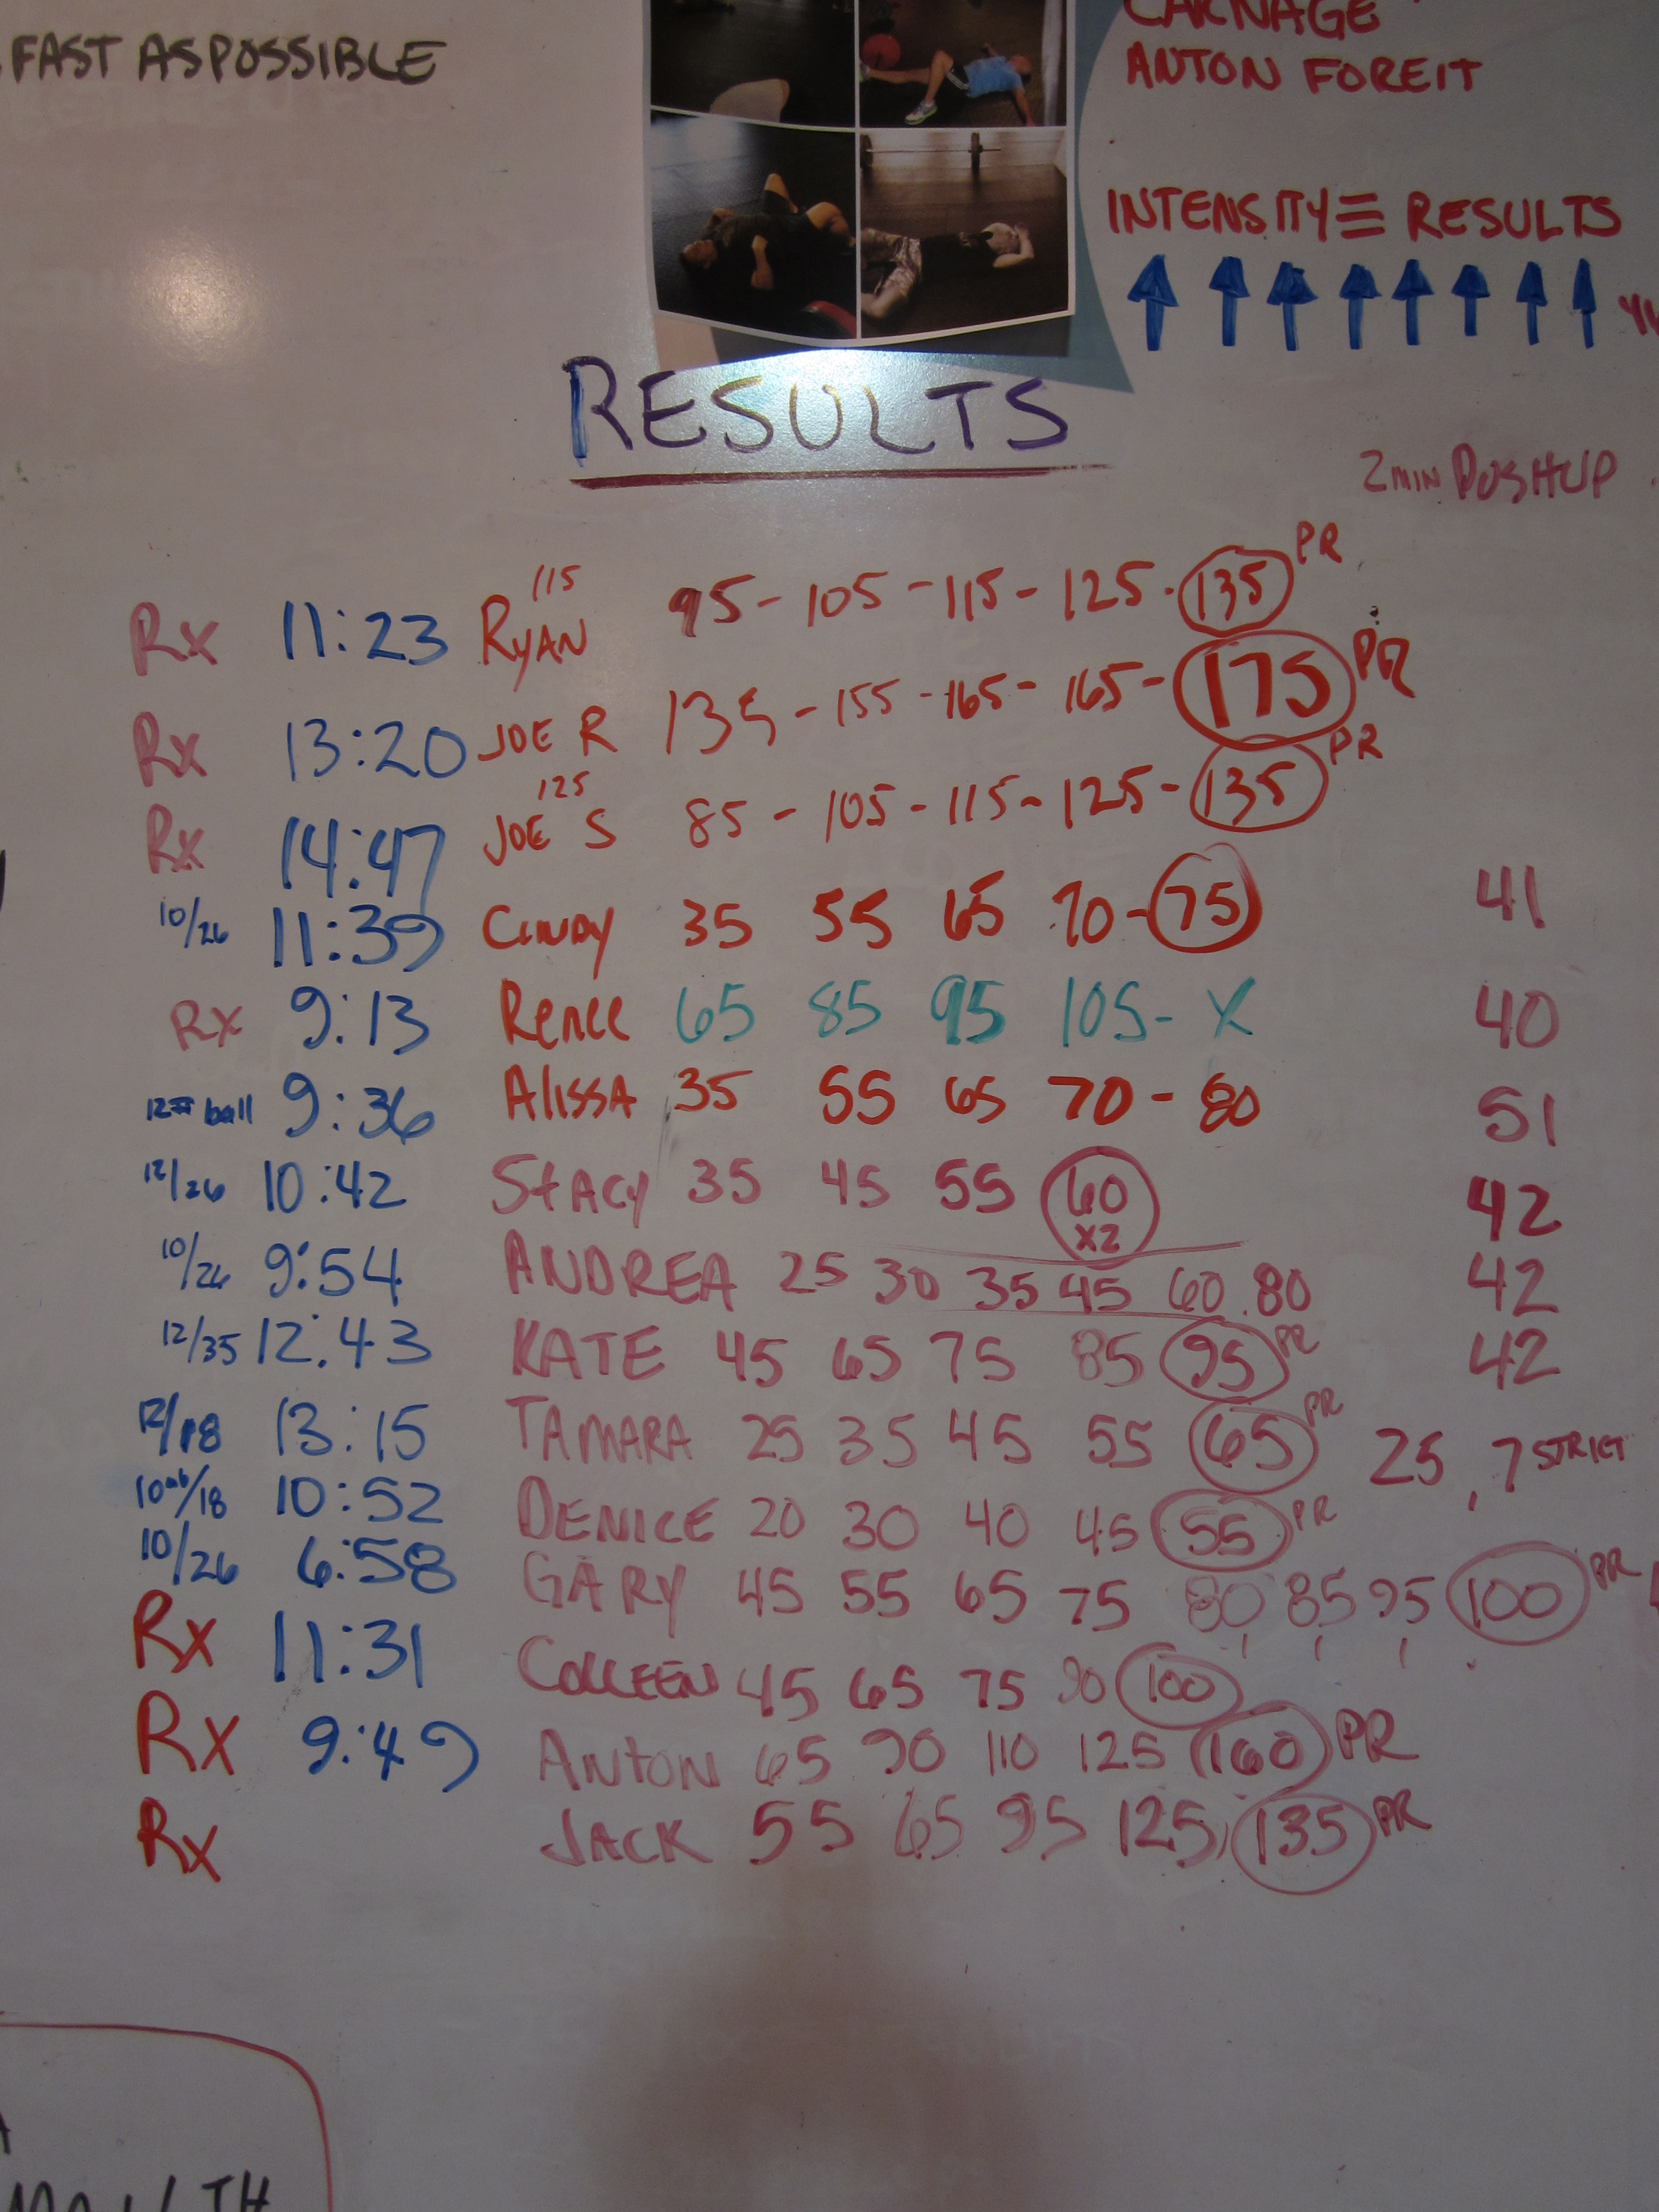 FAST AS POSSIBLE
CARNAGE
ANTON FOREIT
INTENSITY ≡ RESULTS
RESULTS
2 MIN PUSHUP
Rx 11:23 RYAN 115 95 - 105 - 115 - 125 - 135 PR
Rx 13:20 JOE R 135 - 155 - 165 - 165 - 175 PR
Rx 14:47 JOE S 125 85 - 105 - 115 - 125 - 135 PR
10/26 11:39 CINDY 35 55 65 70 - 75 41
Rx 9:13 Renee 65 85 95 105 - X 40
12# ball 9:36 ALISSA 35 55 65 70 - 80 51
12/26 10:42 STACY 35 45 55 60 x2 42
10/26 9:54 ANDREA 25 30 35 45 60 80 42
12/35 12:43 KATE 45 65 75 85 95 PR 42
12/18 13:15 TAMARA 25 35 45 55 65 PR 25, 7 STRICT
10/18 10:52 DENICE 20 30 40 45 55 PR
10/26 6:58 GARY 45 55 65 75 80, 85, 95, 100 PR
Rx 11:31 COLLEEN 45 65 75 90 100
Rx 9:49 ANTON 65 90 110 125 160 PR
Rx JACK 55 65 95 125 135 PR